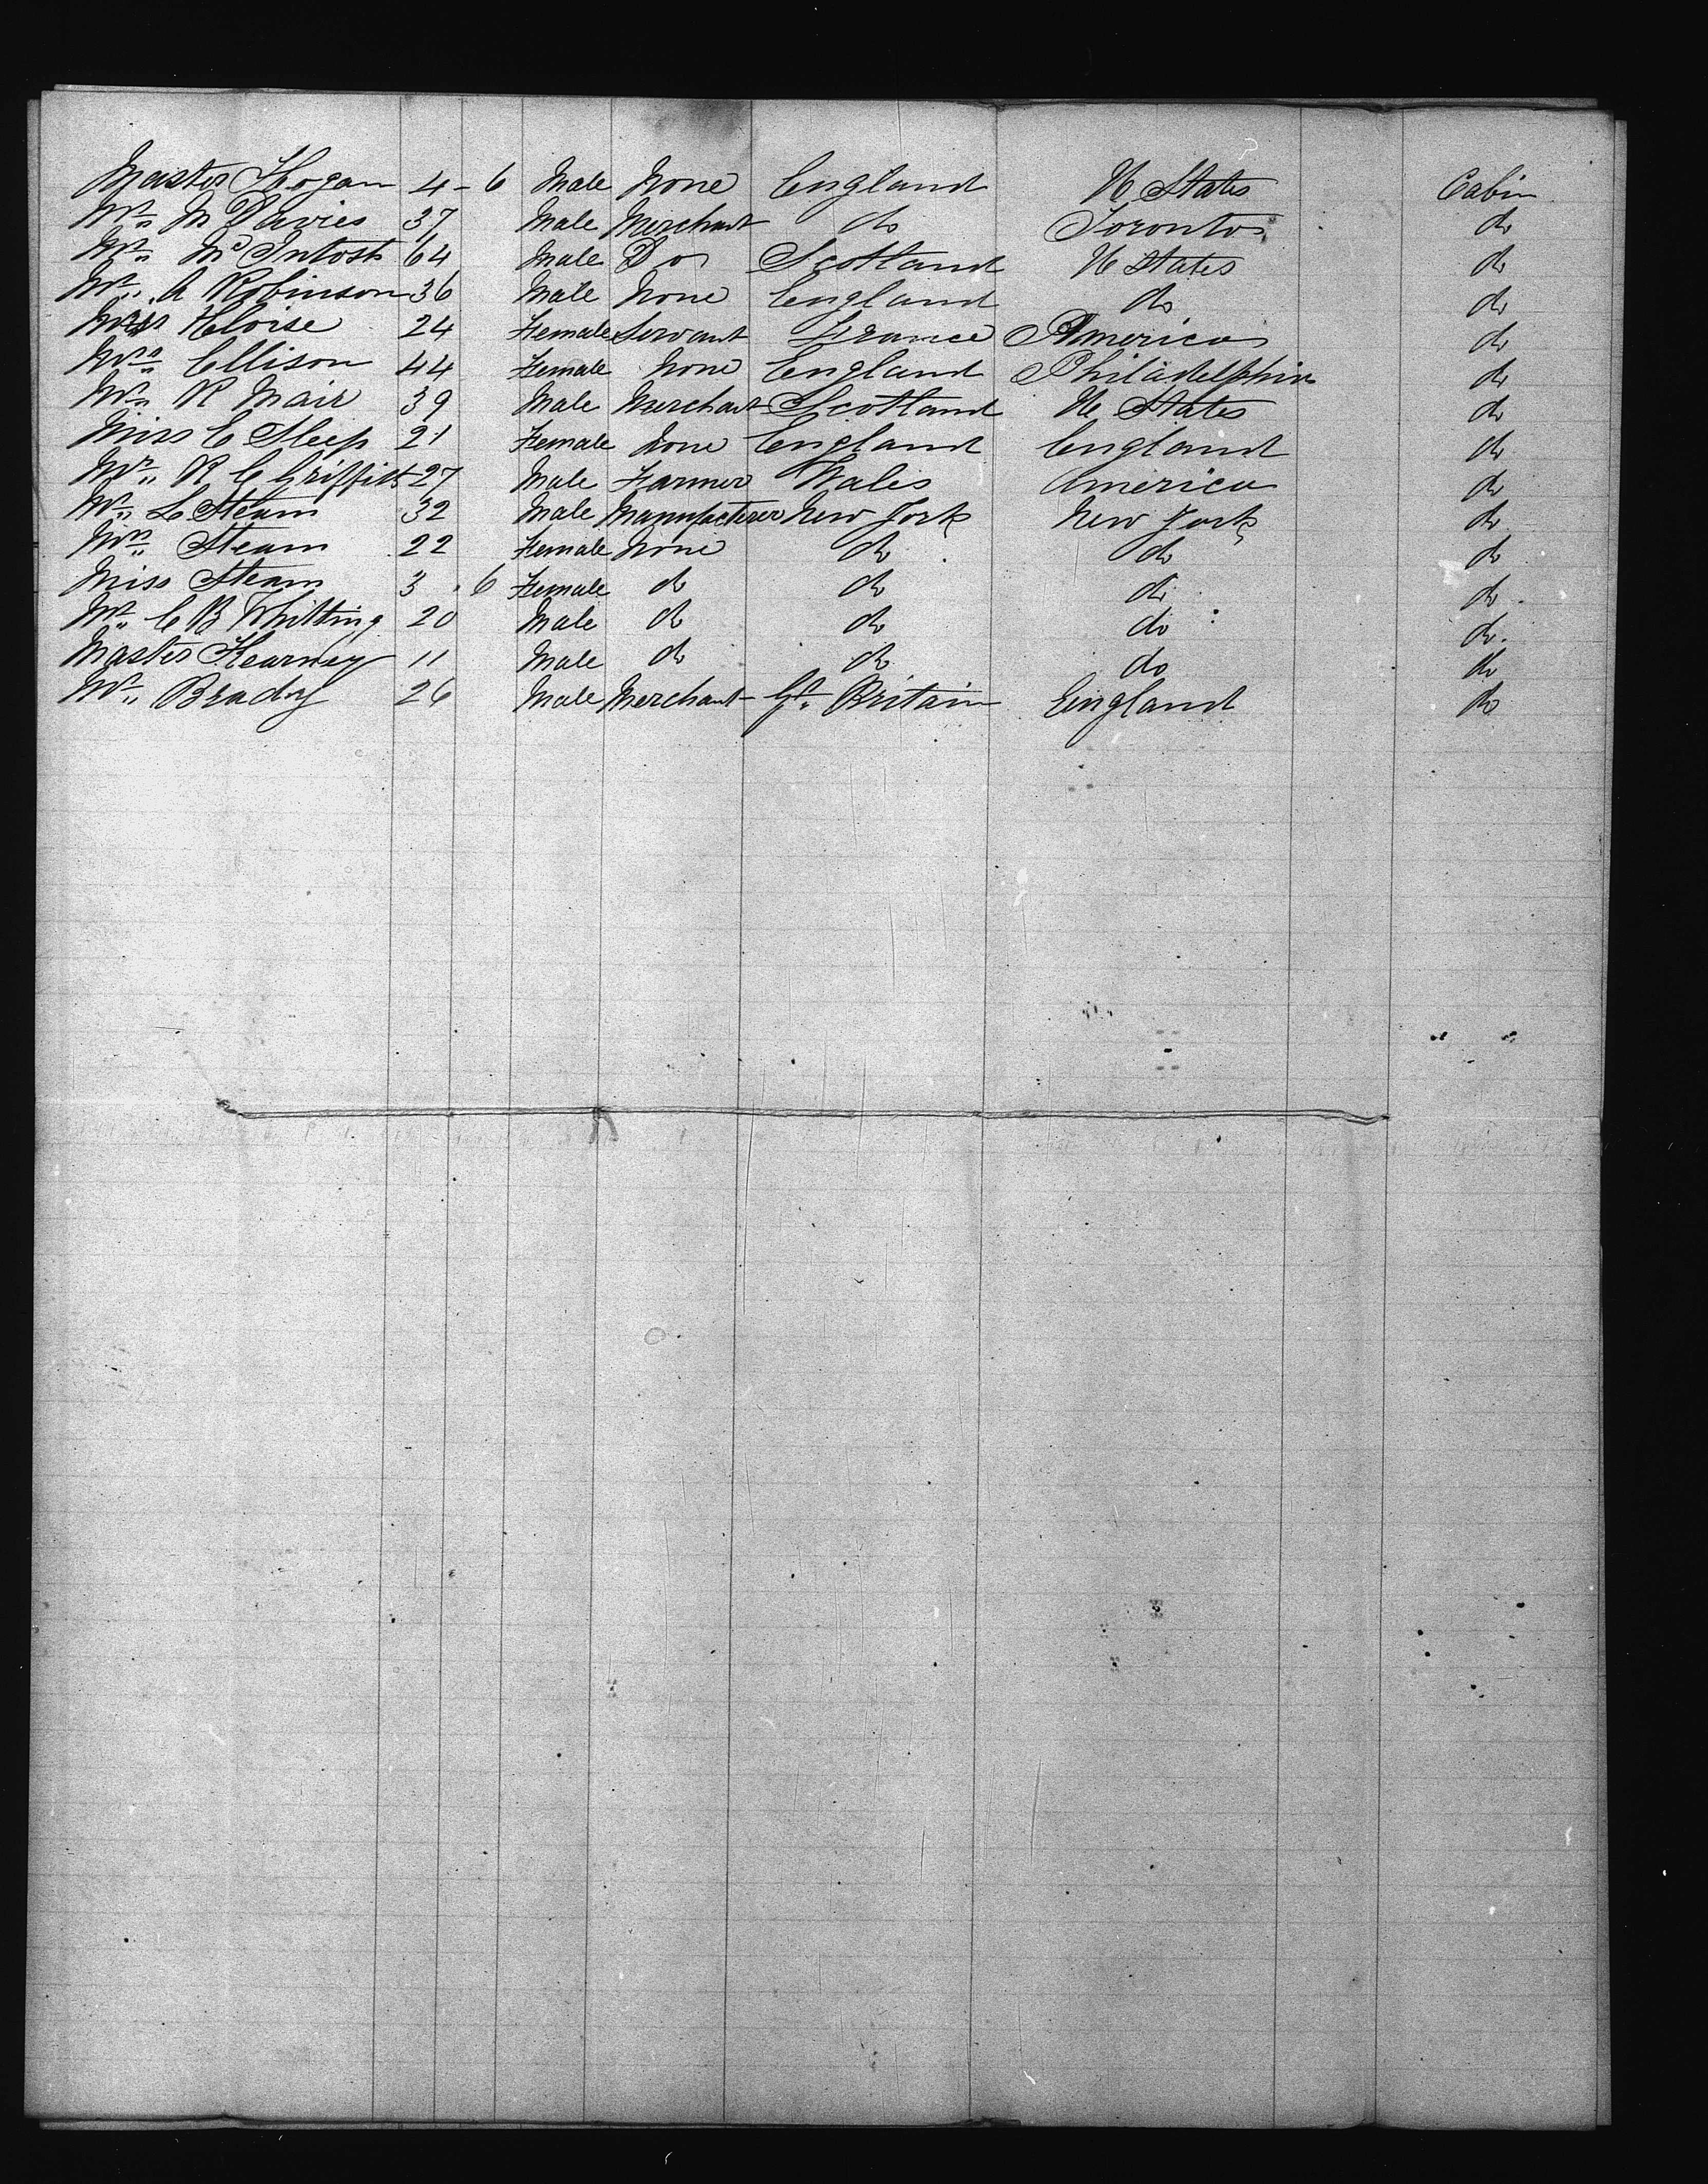 Master Hogan 4 - 6 Male None England U States Cabin
Mr M Davies 37 Male Merchant do Toronto do
Mr McIntosh 64 Male Do Scotland U States do
Mr A Robinson 36 Male None England do do
Heloise 24 Female Servant France America do
Mrs Ellison 44 Female None England Philadelphia do
Mr R Mair 39 Male Merchant Scotland U States do
Miss C Sleep 21 Female None England England do
Mr R C Griffith 27 Male Farmer Wales America do
Mr L Steam 32 Male Manufacterer New York New York do
Mrs Steam 22 Female None do do do
Miss Steam 3 . 6 Female do do do do
Mr C B Whitting 20 Male do do do do
Master Kearney 11 Male do do do do
Mr Brady 26 Male Merchant Gt Britain England do